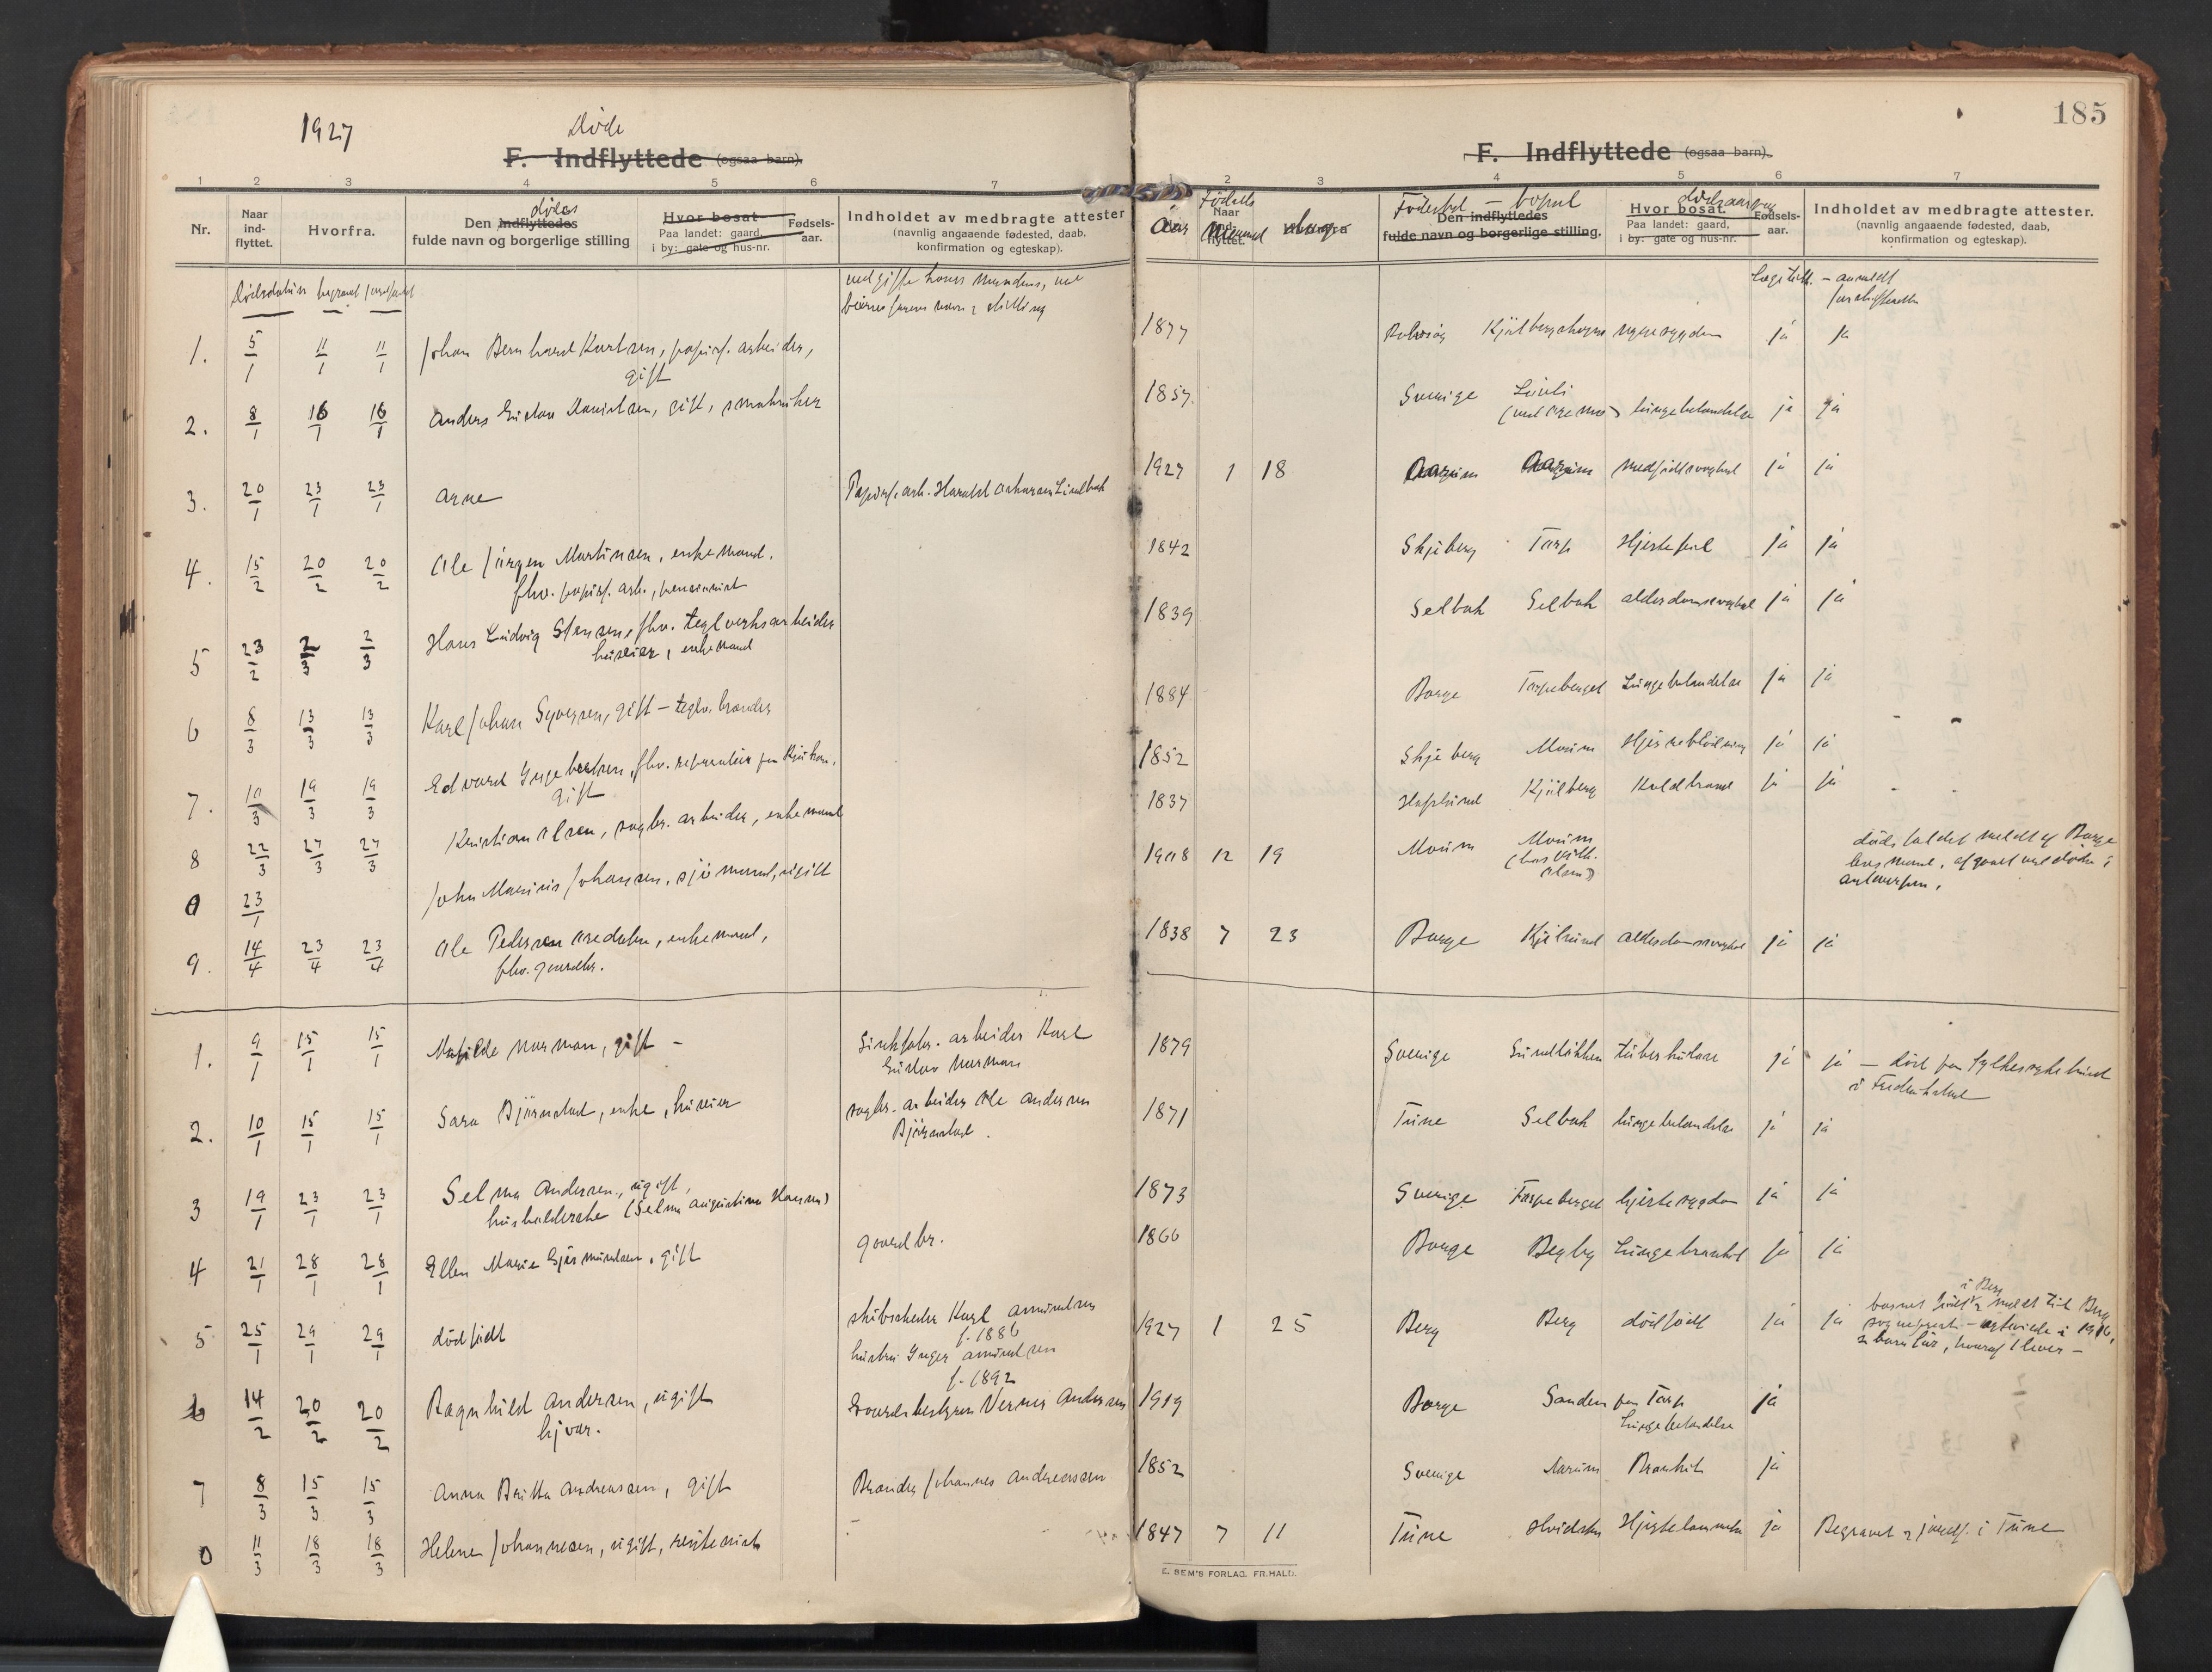 1927
Døde
F. Indflyttede (ogsaa barn).
1 2 3 4 5 6 7
Nr.
Naar ind- flyttet.
Hvorfra.
Den indflyttedes
dødes
fulde navn og borgerlige stilling
Hvor bosat
Paa landet: gaard,
i by: gate og hus-nr.
Fødsels- aar.
Indholdet av medbragte attester
(navnlig angaaende fødested, daab,
konfirmation og egteskap).
Dødsdatum begravet jordfæstet
ved gifte koners mandens, ved
børns farens navn & stilling
1. 5/1 11/1 11/1 Johan Bernhard Karlsen, papirf. arbeider,
gift
2. 8/1 16/1 16/1 Anders Gustav Danielsen, gift, smabruker
3. 20/1 23/1 23/1 Arne Papirf. arb. Harald Lindbak
4. 15/2 20/2 20/2 Ole Jørgen Martinsen, enkemand,
fhv. papirf. arb., pensionist
5 23/2 2/3 2/3 Hans Ludvig Stensen, fhv. teglverksarbeider
huseier, enkemand
6 8/3 13/3 13/3 Karl Johan Syversen, gift – teglv. brænder
7. 10/3 19/3 19/3 Edvard Ingebertsen, fhv. reparatør
gift
8 22/3 27/3 27/3 Kristian Olsen, sagbr. arbeider, enkemand
0 23/1 John Marinius Johansen, sjømand, ugift
9. 14/4 23/4 23/4 Ole Pedersen, enkemand,
fhv. gaardbr.
1. 9/1 15/1 15/1 Matilde Norman, gift – Sinkfabr. arbeider Karl
Gustav Norman
2. 10/1 15/1 15/1 Sara Bjørnstad, enke, huseier sagbr. arbeider Ole Andersen
Bjørnstad.
3 19/1 23/1 23/1 Selma Andersen, ugift,
husholderske (Selma Augustina Hansen)
4 21/1 28/1 28/1 Ellen Marie Gjermundsen, gift gaardbr.
5 25/1 29/1 29/1 dødfødt Karl Amundsen
f. 1886
hustru Inger Amundsen
f. 1892
6 14/2 20/2 20/2 Ragnhild Andersen, ugift Gaardsbestyrer Verner Andersen
hjvær.
7 8/3 15/3 15/3 Anna Britta Andreassen, gift Brænder Johannes Andreassen
0 11/3 18/3 18/3 Helene Johannesen, ugift, rentenist –
185
F. Indflyttede (ogsaa barn).
1 2 3 4 5 6 7
Fødsels
Aar
Naar ind- flyttet.
Maaned
Hvorfra
dag
Fødested – bopæl
Den indflyttedes
fulde navn og borgerlige stilling,
dødsaarsag
Hvor bosat.
Paa landet: gaard,
i by: gate og hus-nr.
Fødsels- aar.
Indholdet av medbragte attester.
(navnlig angaaende fødested, daab,
konfirmation og egteskap).
Lægeatt. – anmeldt
skifteretten
1877 Rolvsøy nyresygdom ja ja
1857 Sverige lungebetændelse ja ja
1927 1 18 Aarum Aarum medfødt svaghed ja ja
1842 Skjeberg Torp Hjertefeil ja ja
1839 Selbak Selbak alderdomssvaghed ja ja
1884 Borge Torpeberget Lungebetændelse ja ja
1852 Skjeberg Moum Hjerneblødning ja ja
1837 Hafslund Kjølberg Koldbrand ja ja
1908 12 19 Moum Moum
(hos
Olsen)
dødsfaldet meldt af Borge
lensmand, afgaaet ved døden i
Antwerpen.
1838 7 23 Borge Kjølsund alderdomssvaghed ja ja
1879 Sverige Sundløkken tuberkulose ja ja – død paa Fylkessykehuset
i Fredrikstad
1871 Tune Selbak lungebetændelse ja ja
1873 Sverige Torpeberget hjertesygdom ja ja
1866 Borge Begby Lungebrankit ja ja
1927 1 25 Berg Berg dødfødt ja ja
i Berg
barnet født & meldt til Berg
sogneprest – egteviede i 1916,
2 barn før, hvoraf 1 lever –
1919 Borge Sanden paa Torp ja
Lungebetændelse
1852 Sverige Aarum Bronkit ja
1847 7 11 Tune Hvidsten Hjertelammelse ja Begravet & jordf. i Tune
E. SEM'S FORLAG. FR.HALD.